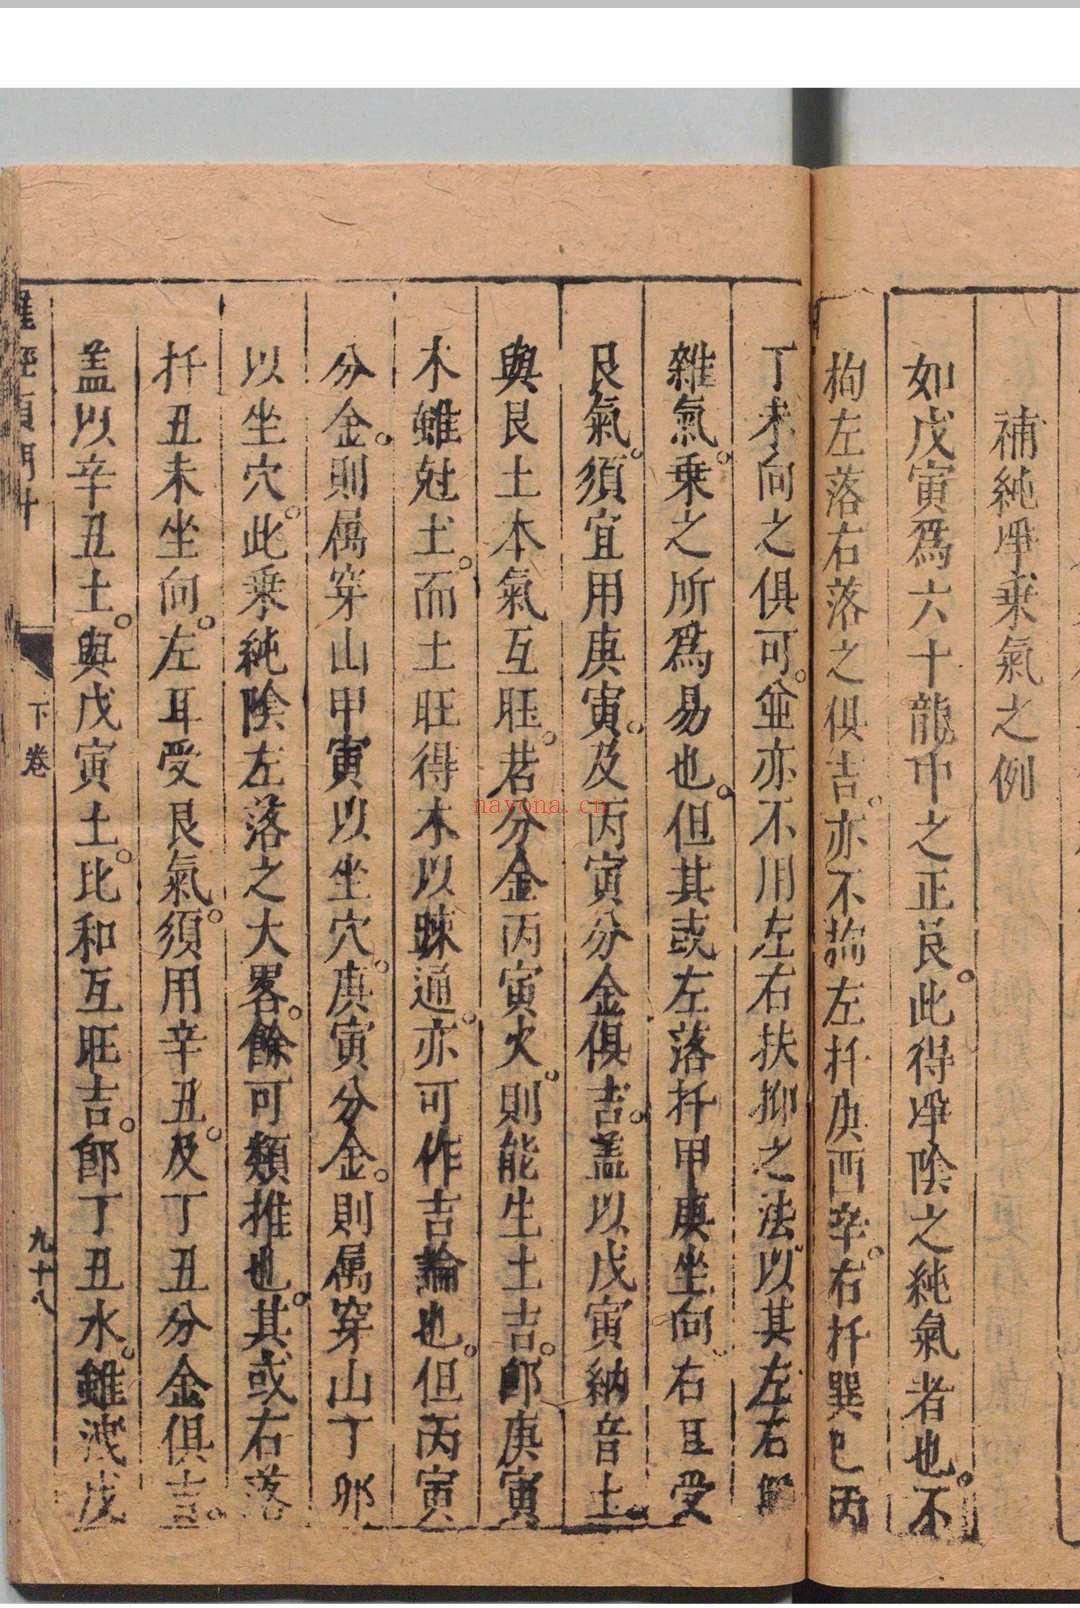 補純凈乗氣之例
如戊寅爲六十龍中之正艮此得凈隂之純氣者也不
拘左落右落之俱吉亦不論左扦庚酉辛右扦巽巳丙
丁未向之俱可並亦不用左右扶抑之法以其左右
雜氣乗之所爲易也但其或左落扦甲庚坐向右耳受
艮氣須宜用庚寅及丙寅分金俱吉盖以戊寅納音土
與艮土本氣互旺若分金丙寅火則能生土吉郎庚寅
木雖尅土而土旺得木以疎通亦可作吉論也但丙寅
分金則属穿山甲寅以坐穴庚寅分金則属穿山丁卯
以坐穴此乗純隂左落之大畧餘可類推也其或右落
扦丑未坐向左耳受艮氣須用辛丑及丁丑分金俱吉
盖以辛丑土與戊寅土比和互旺吉郎丁丑水雖洩戊
羅經頂門針
下卷
九十八
nayona.cn